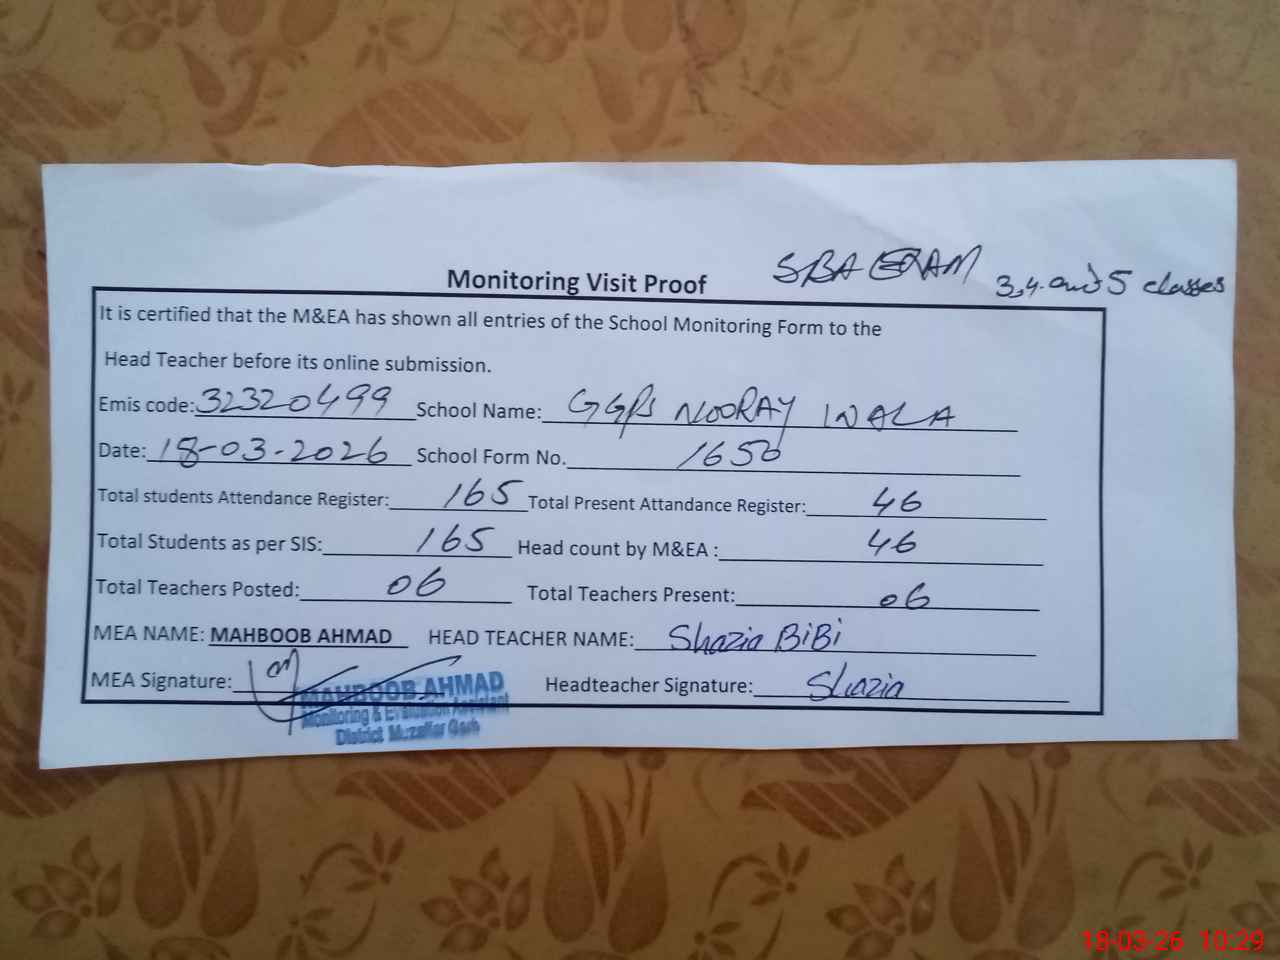 SBA EXAM 3,4. and 5 classes
Monitoring Visit Proof
It is certified that the M&EA has shown all entries of the School Monitoring Form to the
Head Teacher before its online submission.
Emis code: 32320499 School Name: GGPS NOORAY WALA
Date: 18-03-2026 School Form No. 1650
Total students Attendance Register: 165 Total Present Attandance Register: 46
Total Students as per SIS: 165 Head count by M&EA : 46
Total Teachers Posted: 06 Total Teachers Present: 06
MEA NAME: MAHBOOB AHMAD HEAD TEACHER NAME: Shazia BiBi
MEA Signature: Headteacher Signature: Shazia
MAHBOOB AHMAD
Monitoring & Evaluation Assistant
District Muzaffar Garh
18-03-26 10:29